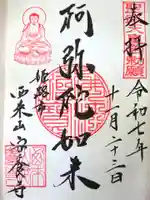 奉拝
令和七年
十一月二十三日
阿弥陀如来
姫路市
西来山